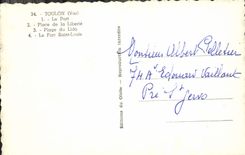 34. - TOULON (Var)
1. - Le Port
2. - Place de la Liberté
3. - Plage du Lido
4. - Le Fort Saint-Louis
Editions du Globe - Reproduction interdite
Monsieur Albert Pelletier
74 A Edouard Vaillant
Pré St Gervs